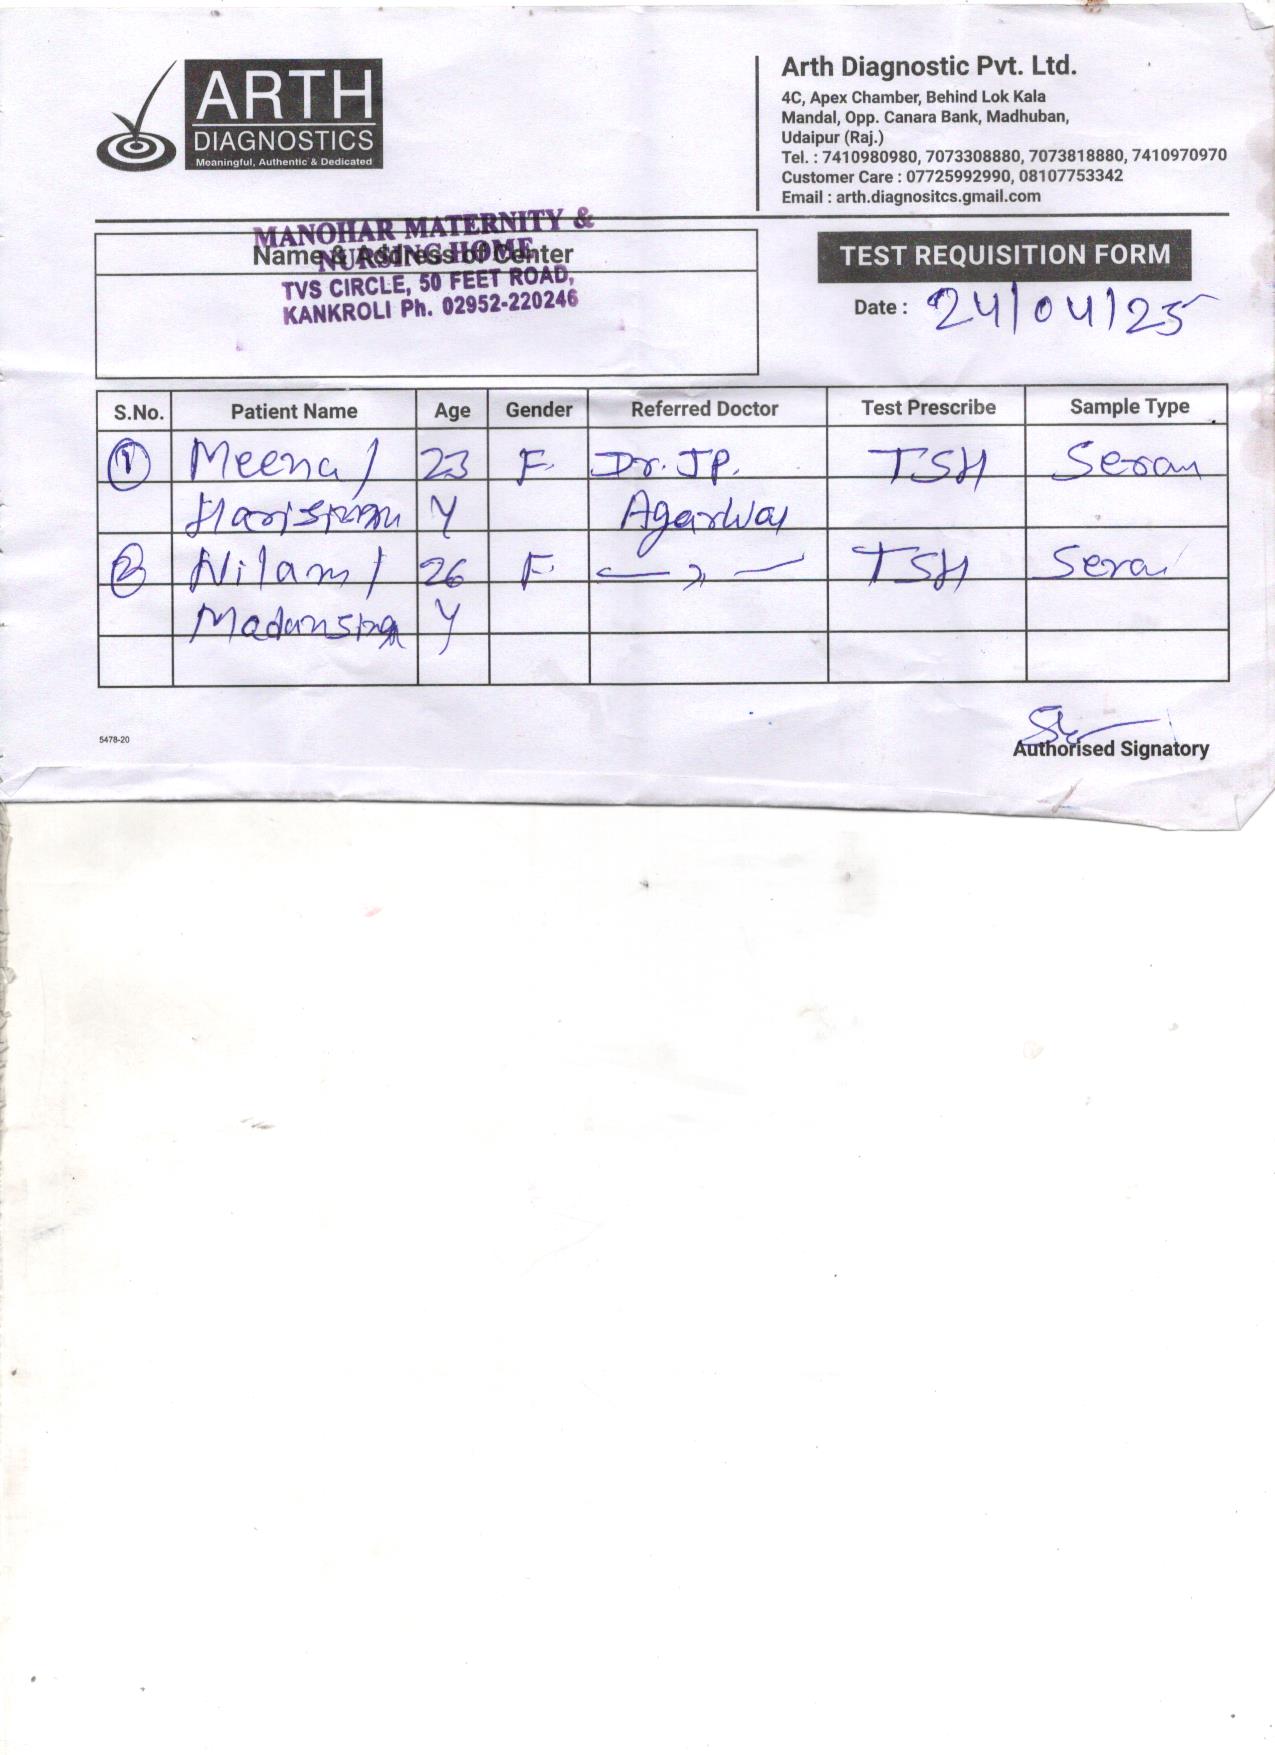 ARTH
DIAGNOSTICS
Meaningful, Authentic & Dedicated
Arth Diagnostic Pvt. Ltd.
4C, Apex Chamber, Behind Lok Kala
Mandal, Opp. Canara Bank, Madhuban,
Udaipur (Raj.)
Tel. : 7410980980, 7073308880, 7073818880, 7410970970
Customer Care : 07725992990, 08107753342
Email : arth.diagnositcs.gmail.com
MANOHAR MATERNITY &
NURSING HOME
Name & Address of Center
TVS CIRCLE, 50 FEET ROAD,
KANKROLI Ph. 02952-220246
TEST REQUISITION FORM
Date : 24/04/25
S.No. Patient Name Age Gender Referred Doctor Test Prescribe Sample Type
1 Meena / 23 F Dr. JP. TSH Seram
Y Agarwal
2 Nilam / 26 F — ,, — TSH
Madansing Y
5478-20
Authorised Signatory